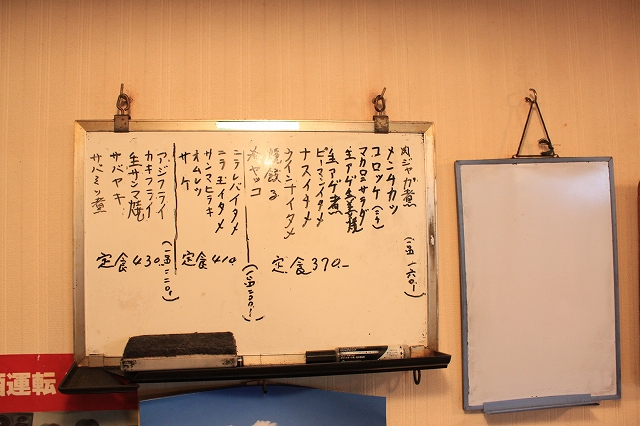 肉ジャガ煮
メンチカツ
コロッケ(二ケ)
マカロニサラダ
生アゲ生姜焼
生アゲ煮
ピーマンイタメ
ナスイタメ
ウインナイタメ
焼餃子
冷ヤッコ
(一品 一六〇.-)
定食370.-
ニラレバイタメ
ニラ玉イタメ
サンマヒラキ
オムレツ
サケ
(一品二〇〇.-)
定食410.
アジフライ
カキフライ
生サンマ焼
サバヤキ
サバミソ煮
(一品二二〇.-)
定食430.-
酒運転